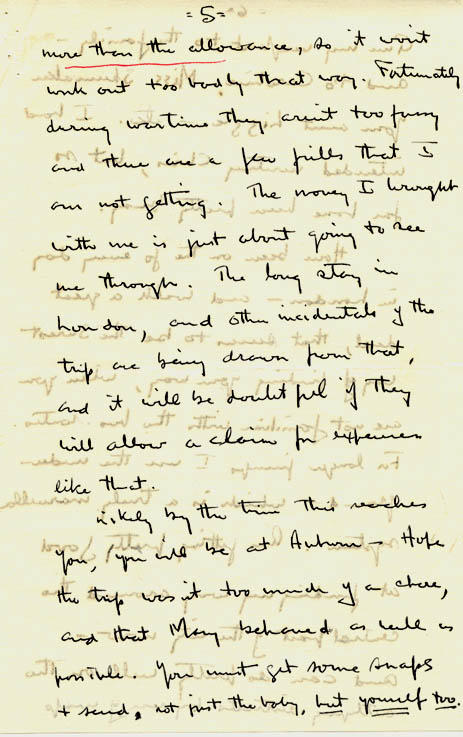 = 5 =
more than the allowance, so it won't
work out too badly that way. Fortunately
during wartime they aren't too fussy
and there are a few frills that I
am not getting. The money I brought
with me is just about going to see
me through. The long stay in
London, and other incidentals of the
trip are being drawn from that,
and it will be doubtful if they
will allow a claim for expenses
like that.
Likely by the time this reaches
you, you will be at Auburn - Hope
the trip wasn't too much of a chore,
and that Mary behaved as well as
possible. You must get some snaps
+ send, not just the baby, but yourself too.